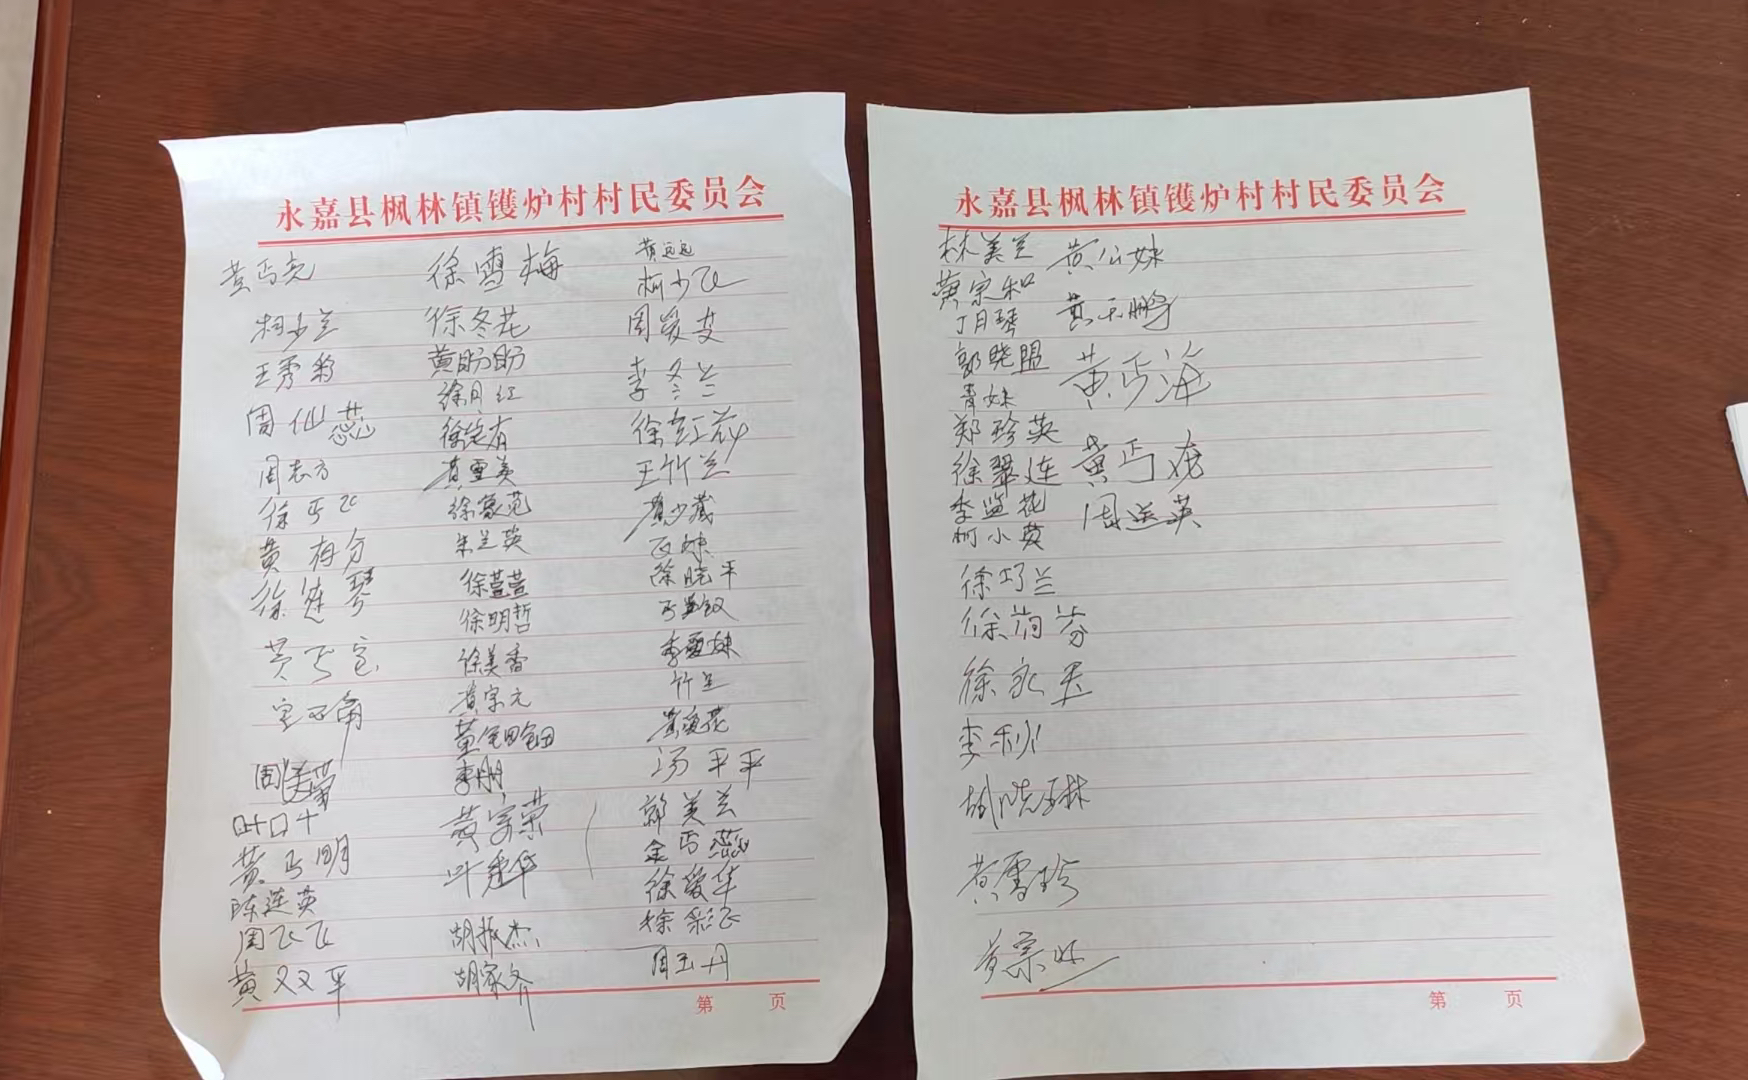 永嘉县枫林镇镬炉村村民委员会
黄丐尧 徐雪梅 黄远远
柯少兰 徐冬花 柯少飞
王秀彩 黄盼盼 周爱芝
周仙蕊 徐月红 李冬兰
周志方 徐定有 徐红苏
徐丐飞 黄雪美 王竹兰
黄存分 徐豪范 黄少藏
徐莲琴 朱兰英 飞妹
黄丐宅 徐萱萱 徐晓平
徐明哲
徐美香 李雪妹
黄宗元 竹兰
周美萍 黄爱花
叶口十 李朋 汤平平
黄丐明 黄宗荣 郭美兰
陈莲英 叶秀华 金丐蕊
周飞飞 胡振杰 徐爱华
黄双平 胡家齐 徐彩飞
周玉丹
第 页
永嘉县枫林镇镬炉村村民委员会
林美兰 黄公妹
黄宗和
丁月琴 黄天鹏
郭晓盟 黄丐海
青妹
郑珍英
徐翠连 黄丐
李蓝花 周送英
柯小英
徐巧兰
徐荷芬
徐永玉
李秋
胡晓琳
黄雪珍
黄宗
第 页